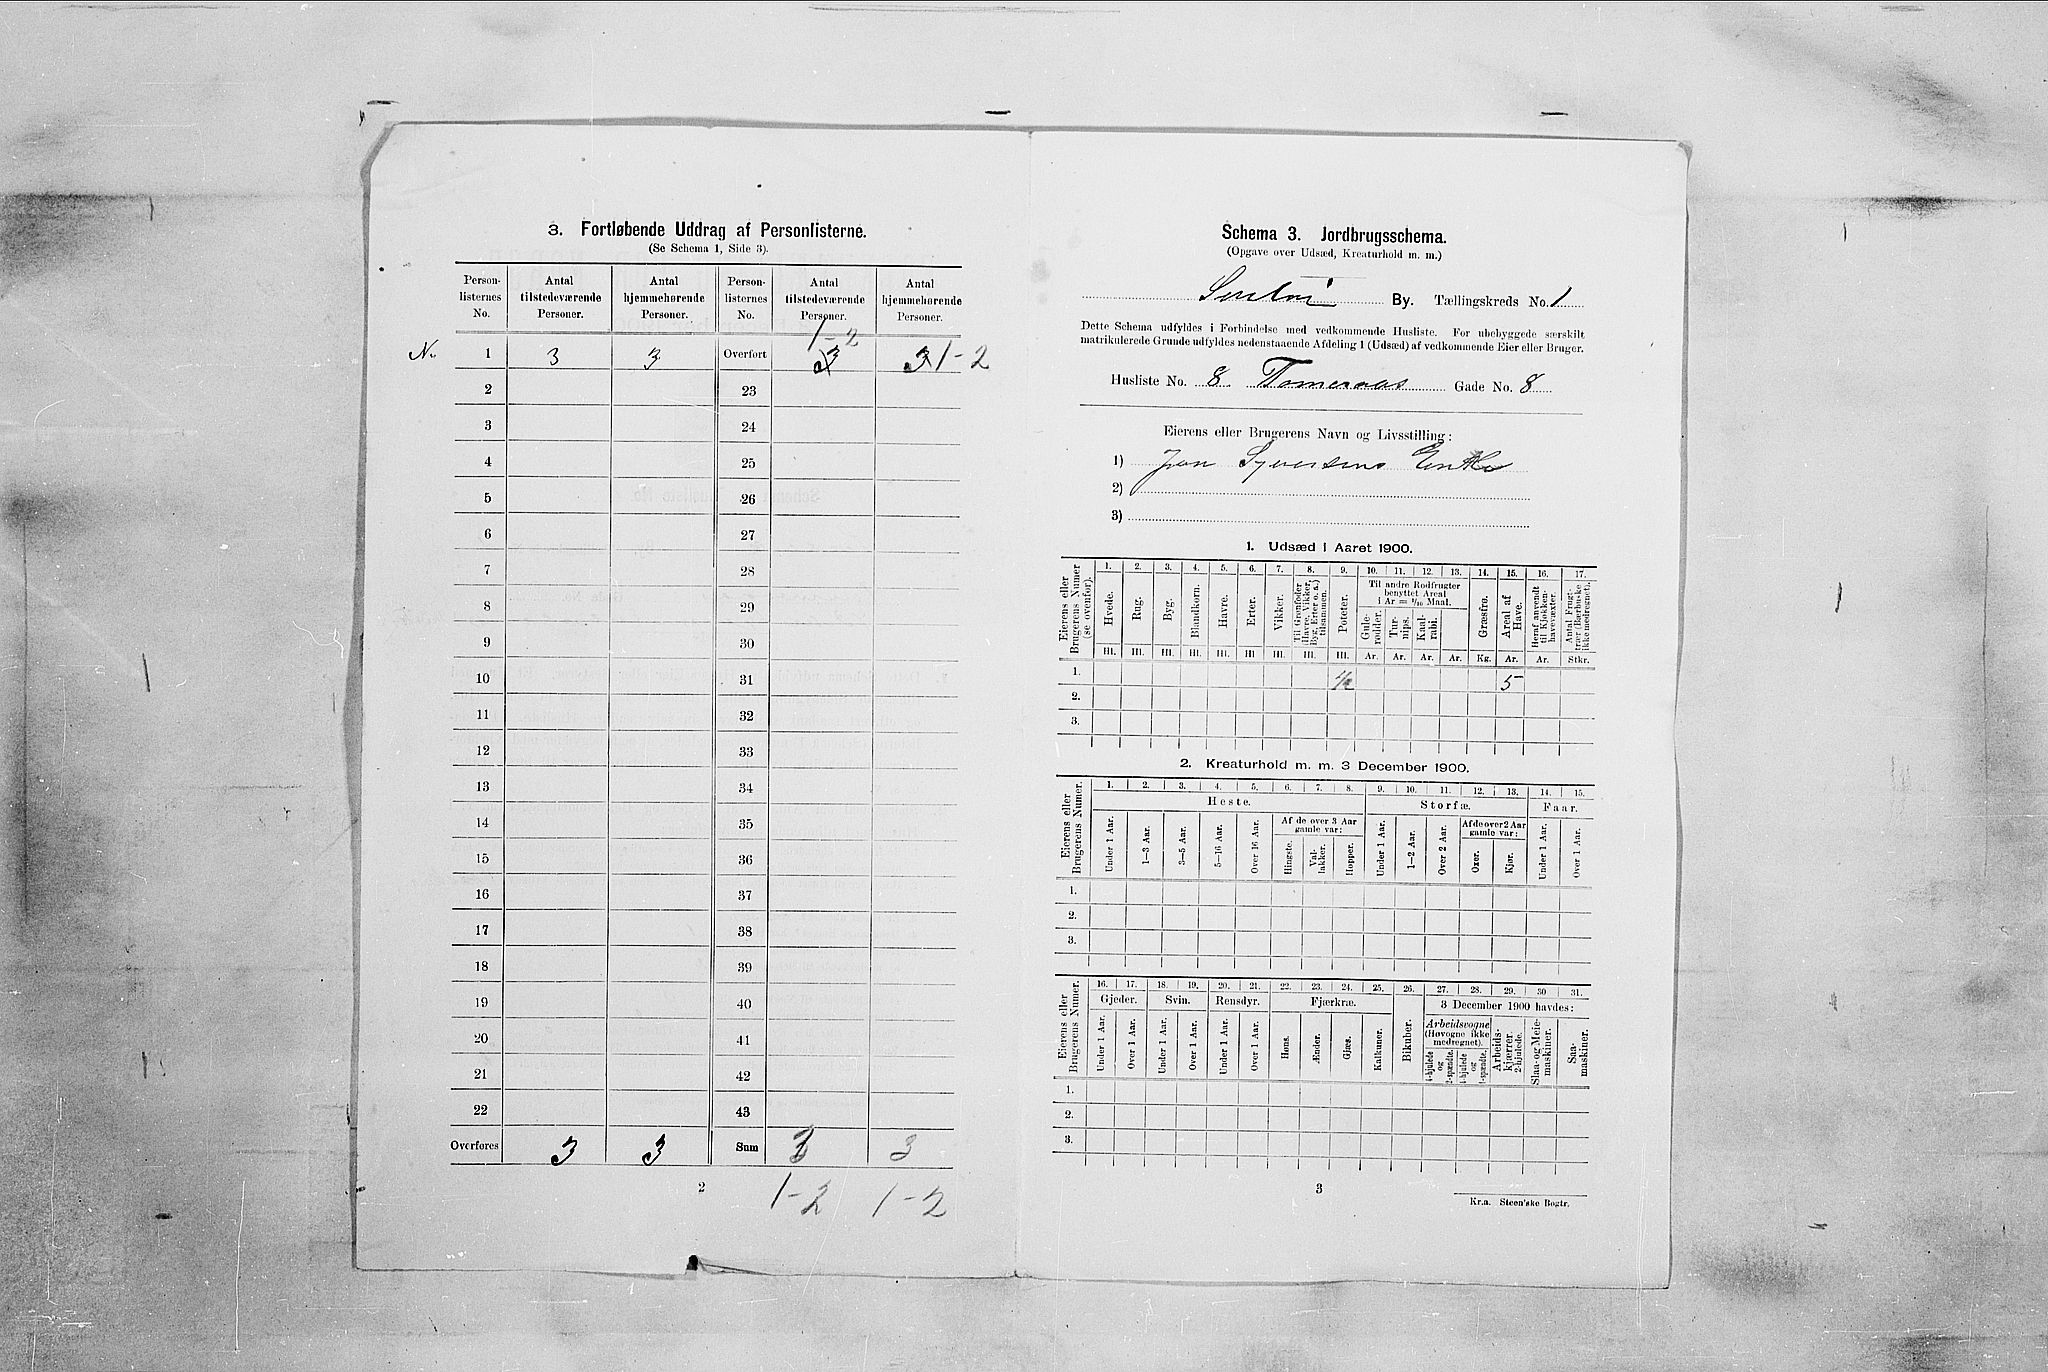 3. Fortløbende Uddrag af Personlisterne.
(Se Schema 1, Side 3).
Person-listernes No. | Antal tilstedeværende Personer. | Antal hjemmehørende Personer. | Person-listernes No. | Antal tilstedeværende Personer. | Antal hjemmehørende Personer.
1-2
No 1 3 3 Overført 3 3 1-2
2 23
3 24
4 25
5 26
6 27
7 28
8 29
9 30
10 31
11 32
12 33
13 34
14 35
15 36
16 37
17 38
18 39
19 40
20 41
21 42
22 43
Overføres 3 3 Sum 3 3
2 1-2 1-2
Schema 3. Jordbrugsschema.
(Opgave over Udsæd, Kreaturhold m. m.)
By. Tællingskreds No. 1
Dette Schema udfyldes i Forbindelse med vedkommende Husliste. For ubebyggede særskilt
matrikulerede Grunde udfyldes nedenstaaende Afdeling 1 (Udsæd) af vedkommende Eier eller Bruger.
Husliste No. 8. Tomeraas Gade No. 8
Eierens eller Brugerens Navn og Livsstilling:
1) Jon Syversens Enke
2)
3)
1. Udsæd i Aaret 1900.
Eierens eller Brugerens Numer (se ovenfor).
1. 2. 3. 4. 5. 6. 7. 8. 9. 10. 11. 12. 13. 14. 15. 16. 17.
Hvede. Rug. Byg. Blandkorn. Havre. Erter. Vikker. Til Grønfoder (Havre, Vikker, Byg, Erter o. a.) tilsammen. Poteter. Til andre Rodfrugter benyttet Areal i Ar = 1/10 Maal. Gule-rødder. Tur-nips. Kaal-rabi. Græsfrø. Areal af Have. Heraf anvendt til Kjøkken-havevæxter. Antal Frugt-trær (Bærbuske ikke medregnet).
Hl. Hl. Hl. Hl. Hl. Hl Hl. Hl. Hl. Ar. Ar. Ar. Ar. Kg. Ar. Ar. Stkr.
1. 1/2 5
2.
3.
2. Kreaturhold m. m. 3 December 1900.
Eierens eller Brugerens Numer.
1. 2. 3. 4. 5. 6. 7. 8. 9. 10. 11. 12. 13. 14. 15.
Heste. Storfæ. Faar.
Under 1 Aar. 1—3 Aar. 3—5 Aar. 5—16 Aar. Over 16 Aar. Af de over 3 Aar gamle var: Hingste. Val-lakker. Hopper. Under 1 Aar. 1—2 Aar. Over 2 Aar. Af de over 2 Aar gamle var: Oxer. Kjør. Under 1 Aar. Over 1 Aar.
1.
2.
3.
Eierens eller Brugerens Numer.
16. 17. 18. 19. 20. 21. 22. 23. 24. 25. 26. 27. 28. 29. 30 31.
Gjeder. Svin. Rensdyr. Fjærkræ. Bikuber. 3 December 1900 havdes:
Under 1 Aar. Over 1 Aar. Under 1 Aar. Over 1 Aar. Under 1 Aar. Over 1 Aar. Høns. Ænder. Gjæs. Kalkuner. Arbeidsvogne (Høvogne ikke medregnet). 4-hjulede og 2-spændte. 4-hjulede og 1-spændte. Arbeids-kjærrer 2-hjulede. Slaa- og Meie-maskiner. Saa-maskiner.
1.
2.
3.
3
Kr.a. Steen'ske Bogtr.